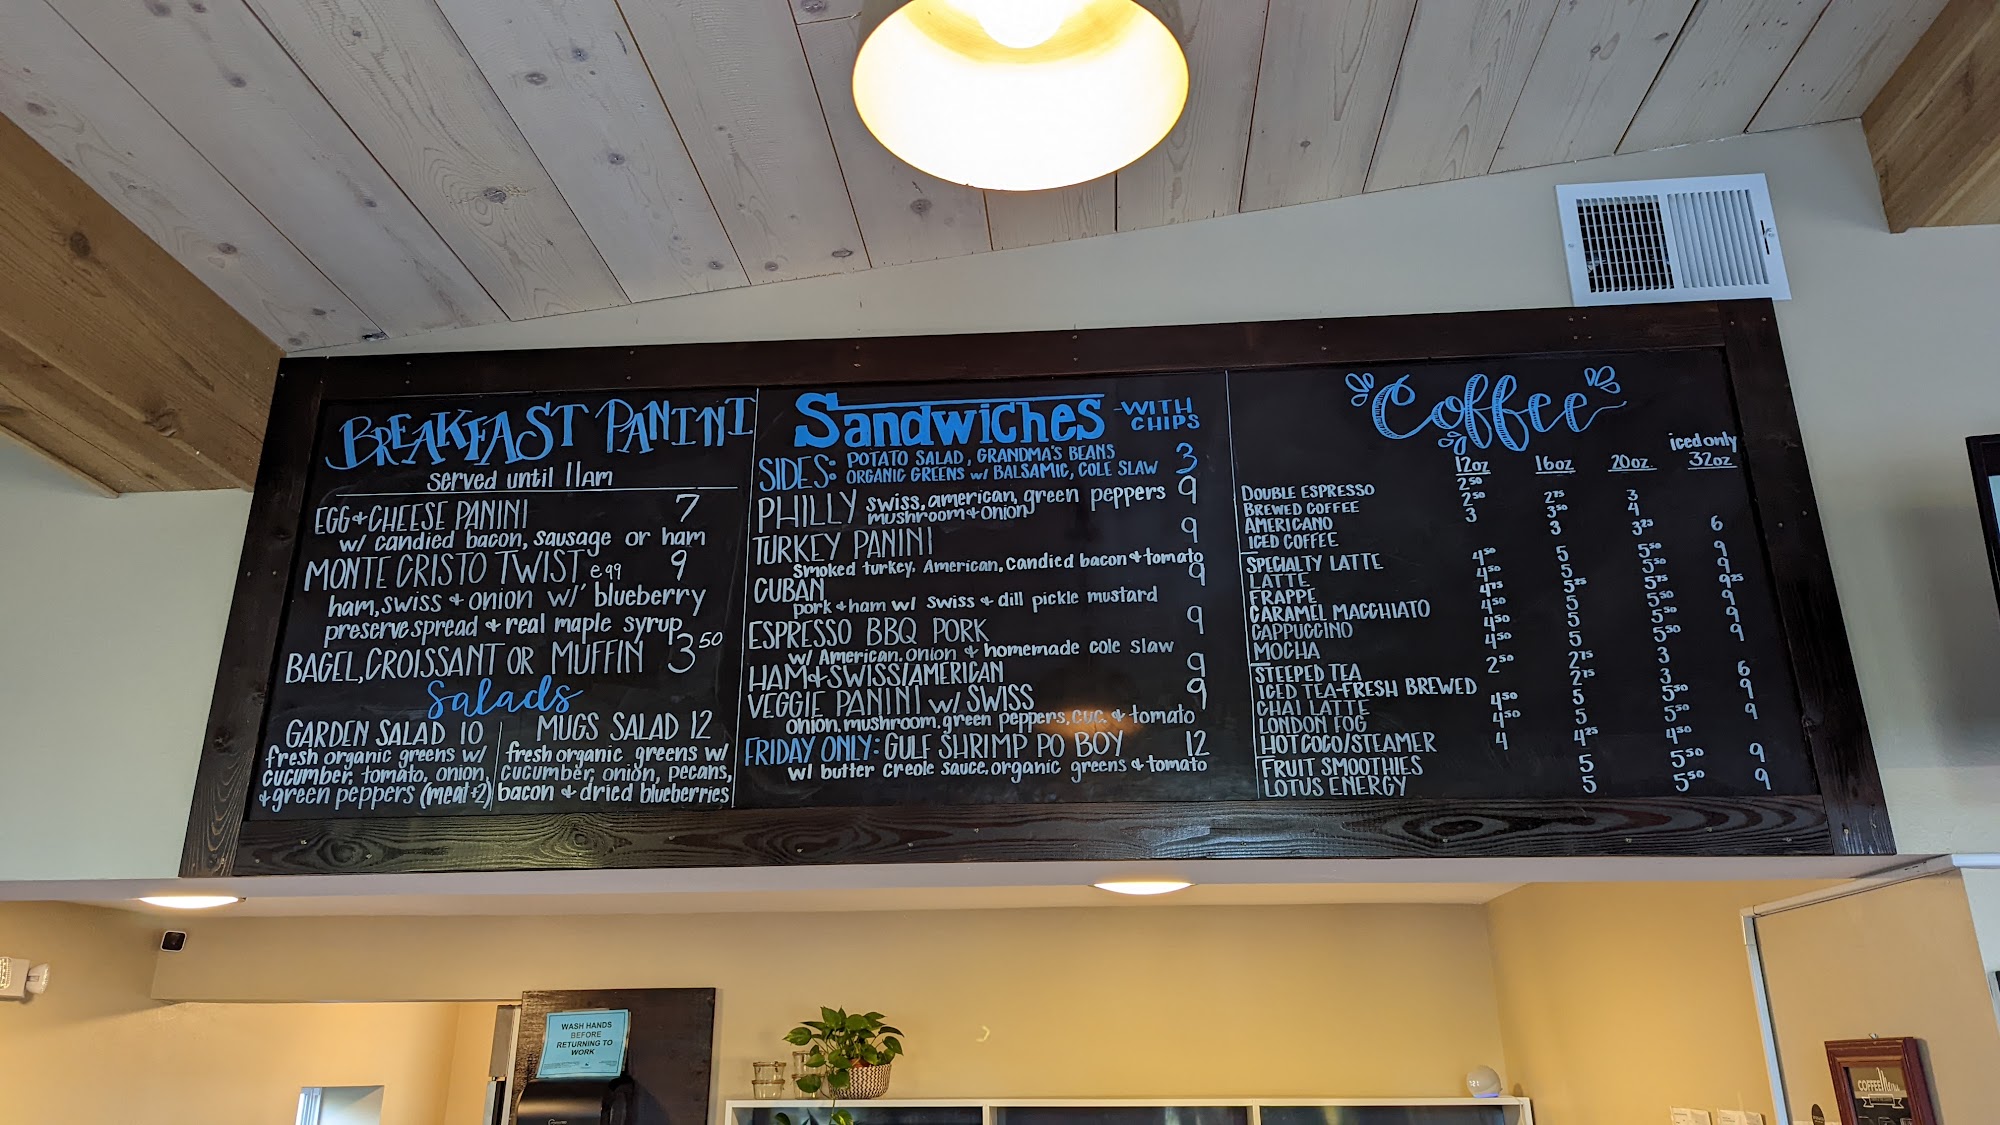 BREAKFAST PANINI
served until 11am
EGG & CHEESE PANINI 7
w/ candied bacon, sausage or ham
MONTE CRISTO TWIST egg 9
ham, swiss & onion w/ blueberry
preserve spread & real maple syrup
BAGEL, CROISSANT OR MUFFIN 3 50
Salads
GARDEN SALAD 10
fresh organic greens w/
cucumber, tomato, onion,
& green peppers (meat +2)
MUGS SALAD 12
fresh organic greens w/
cucumber, onion, pecans,
bacon & dried blueberries
Sandwiches -WITH CHIPS
SIDES: POTATO SALAD, GRANDMA'S BEANS
ORGANIC GREENS w/ BALSAMIC, COLE SLAW 3
PHILLY swiss, american, green peppers 9
mushroom & onion
TURKEY PANINI 9
smoked turkey, American, candied bacon & tomato
CUBAN 9
pork & ham w/ swiss & dill pickle mustard
ESPRESSO BBQ PORK 9
w/ American, onion & homemade cole slaw
HAM & SWISS/AMERICAN 9
VEGGIE PANINI w/ SWISS 9
onion, mushroom, green peppers, cuc. & tomato
FRIDAY ONLY: GULF SHRIMP PO BOY 12
w/ butter creole sauce, organic greens & tomato
Coffee
iced only
12oz 16oz 20oz 32oz
DOUBLE ESPRESSO 2 50
BREWED COFFEE 2 50 2 75 3
AMERICANO 3 3 50 4
ICED COFFEE 3 3 25 6
SPECIALTY LATTE 4 50 5 5 50 9
LATTE 4 50 5 5 50 9
FRAPPE 4 75 5 25 5 75 9 25
CARAMEL MACCHIATO 4 50 5 5 50 9
CAPPUCCINO 4 50 5 5 50 9
MOCHA 4 50 5 5 50 9
STEEPED TEA 2 50 2 75 3
ICED TEA-FRESH BREWED 2 75 3 6
CHAI LATTE 4 50 5 5 50 9
LONDON FOG 4 50 5 5 50 9
HOT COCO/STEAMER 4 4 25 4 50
FRUIT SMOOTHIES 5 5 50 9
LOTUS ENERGY 5 5 50 9
WASH HANDS
BEFORE
RETURNING TO
WORK
COFFEE Menu